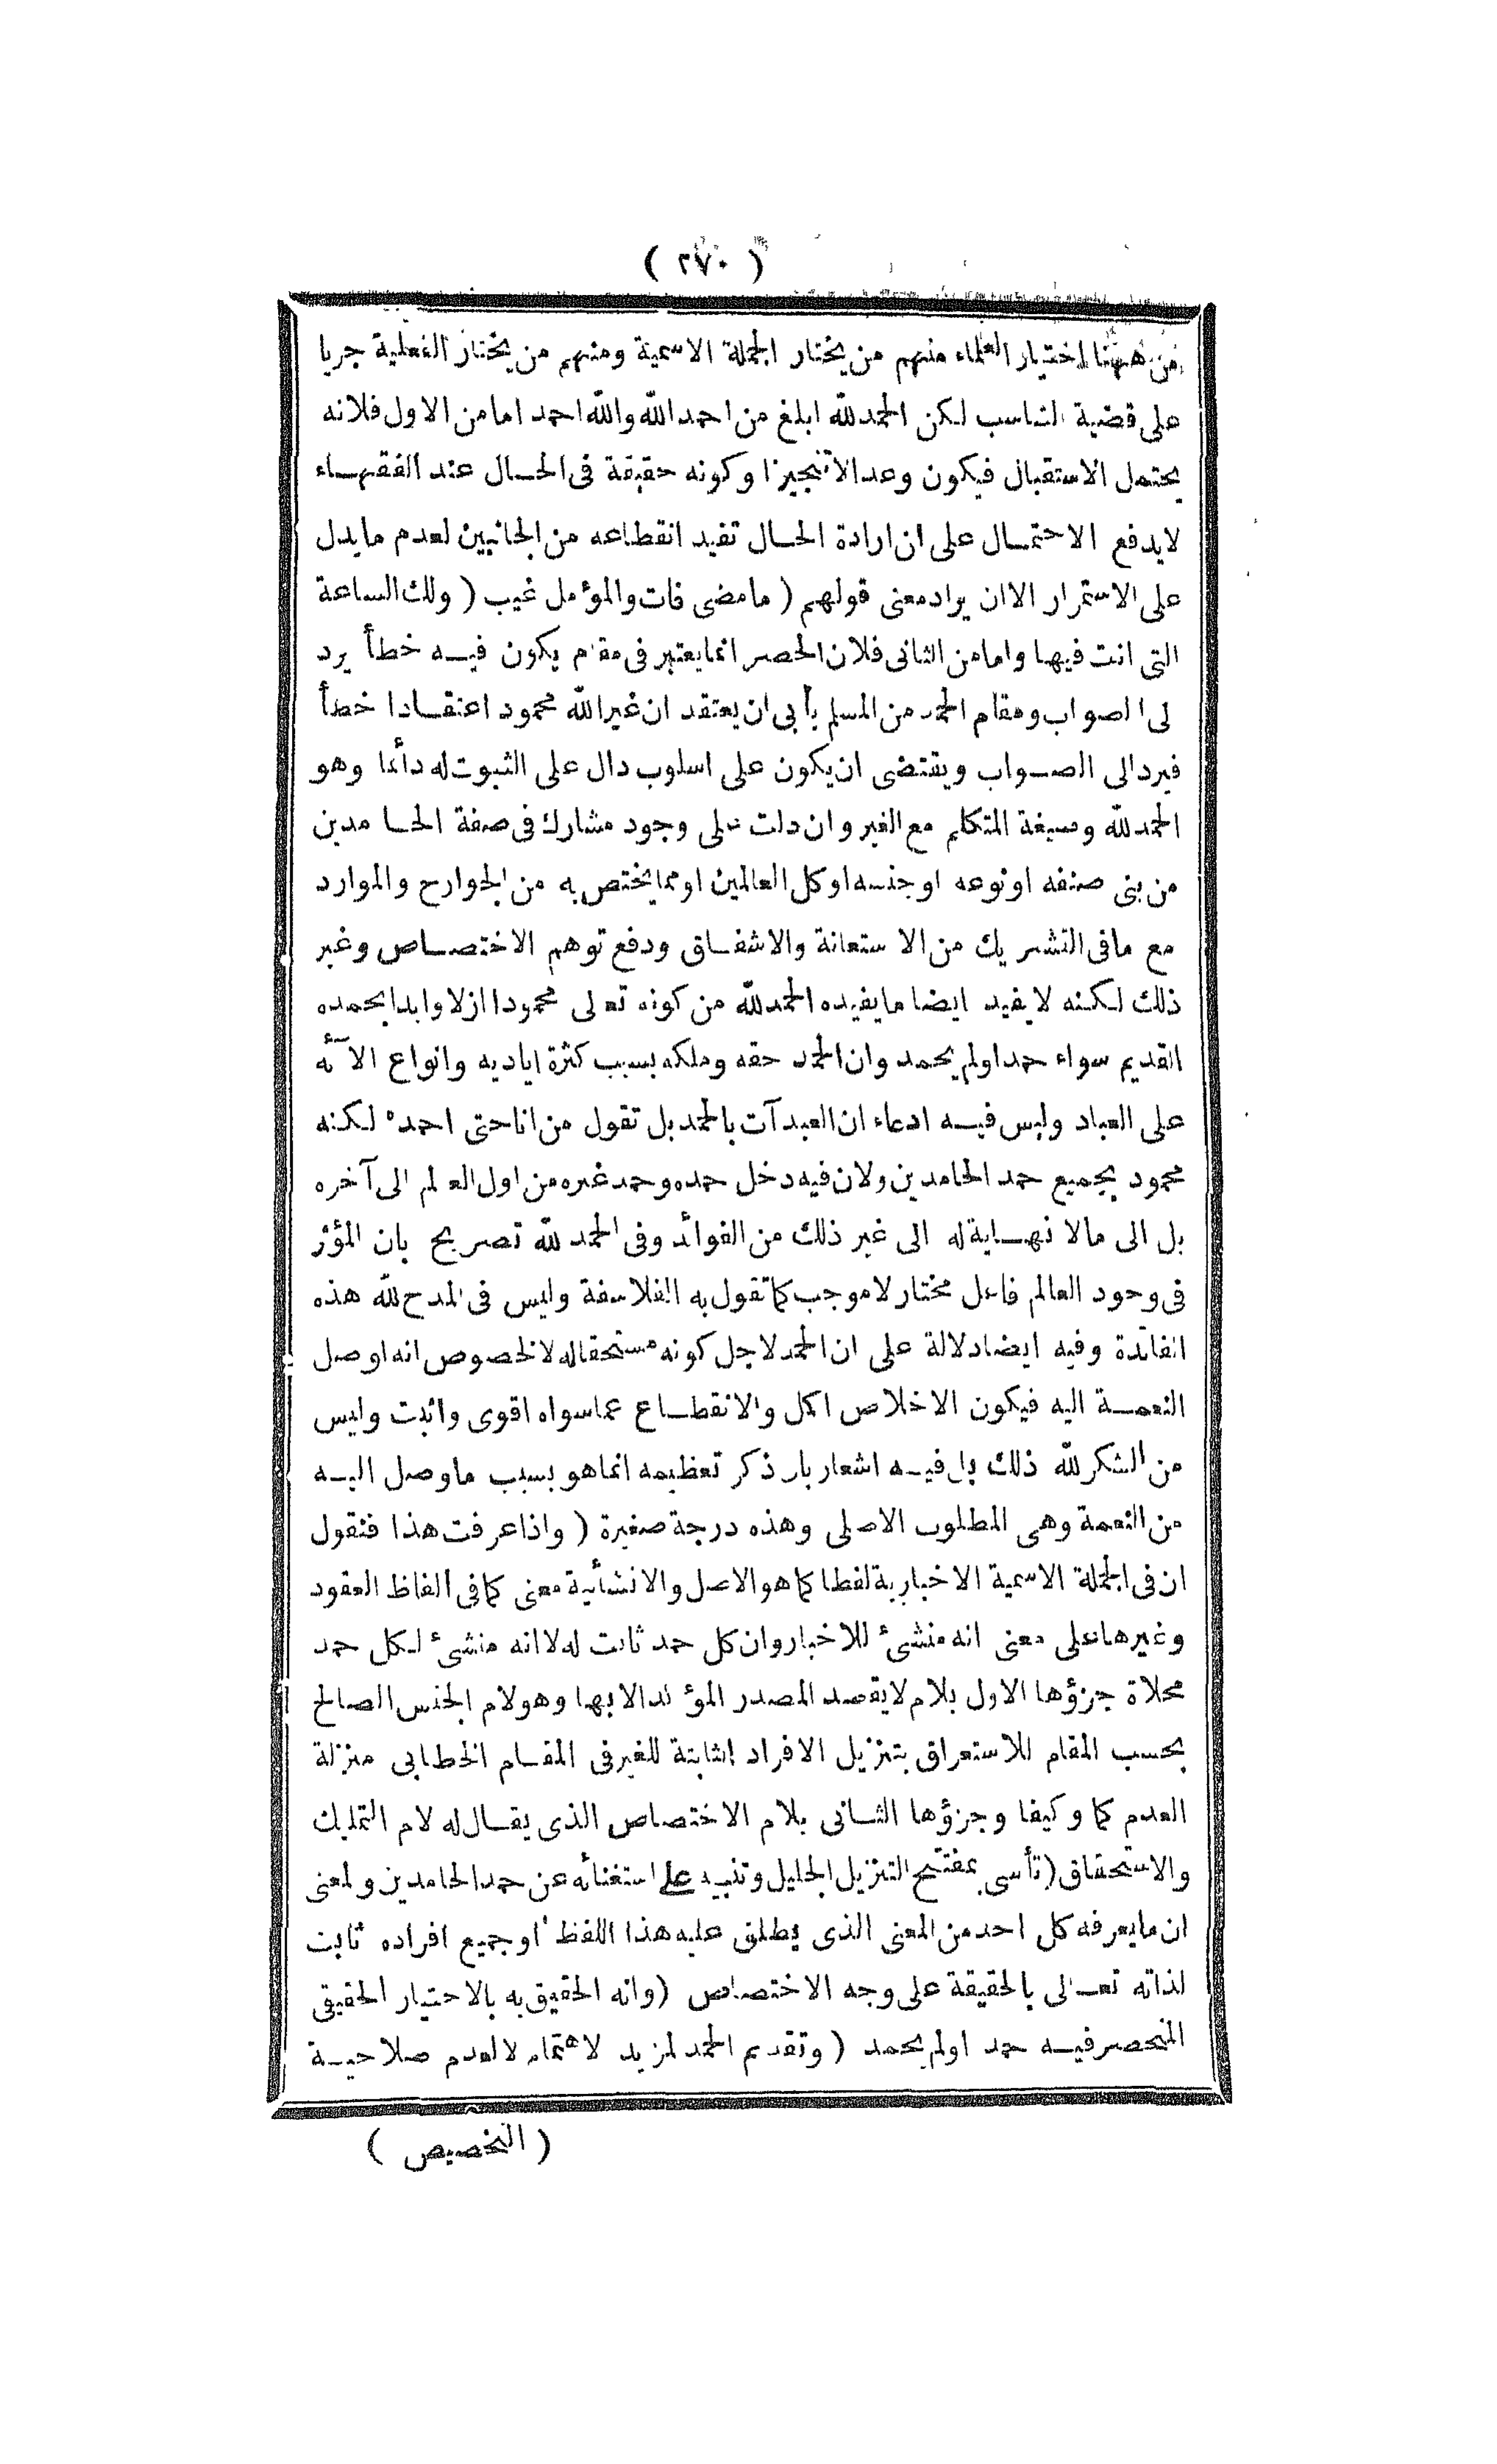 ( ٢٧٠ )
من ههنا اختيار العلماء منهم من يختار الجملة الاسمية ومنهم من يختار الفعلية جريا
على قضية التناسب لكن الحمد لله ابلغ من احمد الله والله احمد اما من الاول فلانه
يحتمل الاستقبال فيكون وعدا لا تنجيزا وكونه حقيقة فى الحال عند الفقهاء
لا يدفع الاحتمال على ان ارادة الحال تفيد انقطاعه من الجانبين لعدم ما يدل
على الاستمرار الا ان يراد معنى قولهم ( ما مضى فات والمؤمل غيب ( ولك الساعة
التى انت فيها واما من الثانى فلان الحصر انما يعتبر فى مقام يكون فيه خطأ يرد
لى الصواب ومقام الحمد من المسلم يأبى ان يعتقد ان غير الله محمود اعتقادا خطأ
فيرد الى الصواب ويقتضى ان يكون على اسلوب دال على الثبوت له دائما وهو
الحمد لله وصيغة المتكلم مع الغير وان دلت على وجود مشارك فى صفة الحامدين
من بنى صنفه او نوعه او جنسه او كل العالمين او مما يختص به من الجوارح والموارد
مع ما فى التشريك من الاستعانة والاشفاق ودفع توهم الاختصاص وغير
ذلك لكنه لا يفيد ايضا ما يفيده الحمد لله من كونه تعالى محمودا ازلا وابدا بحمده
القديم سواء حمد او لم يحمد وان الحمد حقه وملكه بسبب كثرة اياديه وانواع الآئه
على العباد وليس فيه ادعاء ان العبد آت بالحمد بل تقول من انا حتى احمده لكنه
محمود بجميع حمد الحامدين ولان فيه دخل حمده وحمد غيره من اول العالم الى آخره
بل الى ما لا نهاية له الى غير ذلك من الفوائد وفى الحمد لله تصريح بان المؤثر
فى وجود العالم فاعل مختار لا موجب كما تقول به الفلاسفة وليس فى المدح لله هذه
الفائدة وفيه ايضا دلالة على ان الحمد لاجل كونه مستحقا له لا لخصوص انه اوصل
النعمة اليه فيكون الاخلاص اكمل والانقطاع عما سواه اقوى واثبت وليس
من الشكر لله ذلك بل فيه اشعار بان ذكر تعظيمه انما هو بسبب ما وصل اليه
من النعمة وهى المطلوب الاصلى وهذه درجة صغيرة ( واذا عرفت هذا فنقول
ان فى الجملة الاسمية الاخبارية لفظا كما هو الاصل والانشائية معنى كما فى الفاظ العقود
وغيرها على معنى انه منشئ للاخبار وان كل حمد ثابت له لا انه منشئ لكل حمد
محلاة جزؤها الاول بلام لا يقصد المصدر المؤكد الا بها وهو لام الجنس الصالح
بحسب المقام للاستغراق بتنزيل الافراد الثابتة للغير فى المقام الخطابى منزلة
العدم كما وكيفا وجزؤها الثانى بلام الاختصاص الذى يقال له لام التمليك
والاستحقاق ( تأسى بمفتتح التنزيل الجليل وتنبيه على استغنائه عن حمد الحامدين ولمعنى
ان ما يعرفه كل احد من المعنى الذى يطلق عليه هذا اللفظ او جميع افراده ثابت
لذاته تعالى بالحقيقة على وجه الاختصاص ( وانه الحقيق به بالاختيار الحقيقى
المنحصر فيه حمد او لم يحمد ( وتقديم الحمد لمزيد لاهتمام لا لعدم صلاحية
( التخصيص )